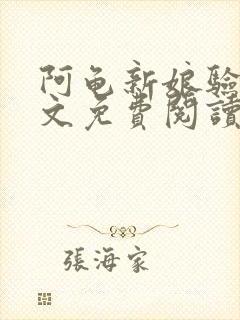 阿龟新娘驗
文免費閱讀
張海家